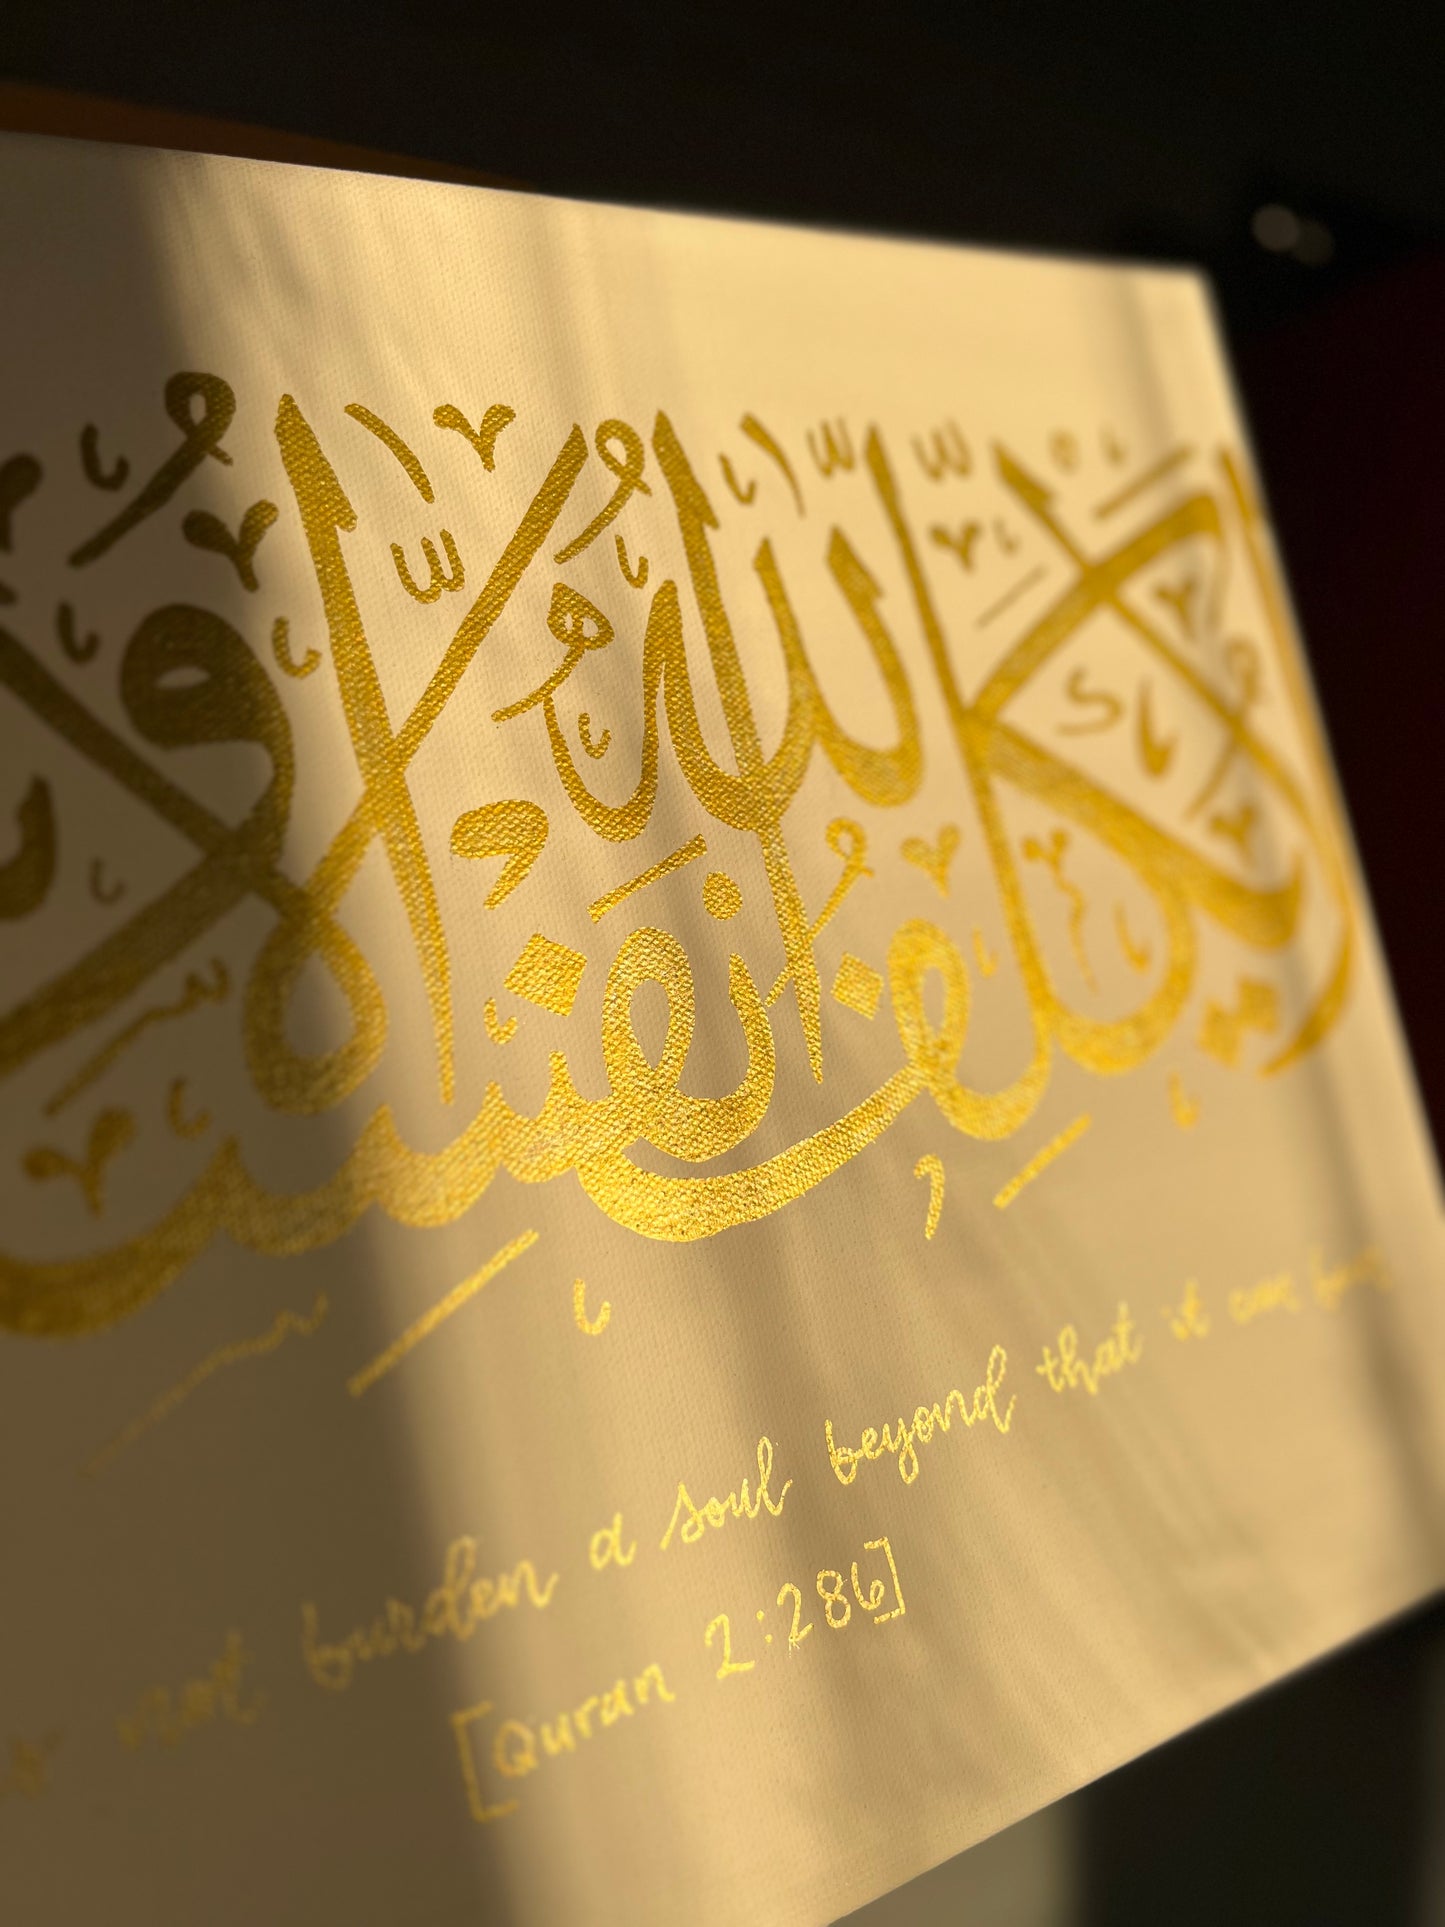 لا يكلف الله نفسا إلا
not burden a soul beyond that it can
[Quran 2:286]